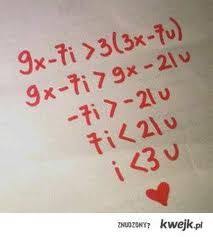 9x-7i>3(3x-7u)
9x-7i>9x-21u
-7i>-21u
7i<21u
i<3u
ZNUDZONY? kwejk.pl